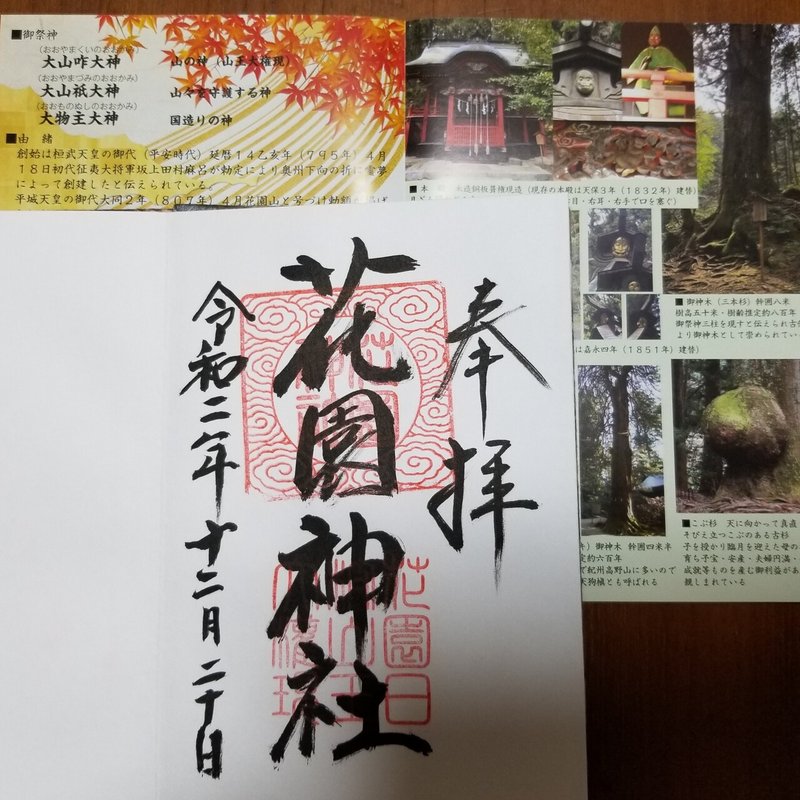 ■御祭神
(おおやまくいのおおかみ)
大山咋大神 山の神（山王大権現）
(おおやまづみのおおかみ)
大山祇大神 山々を守護する神
(おおものぬしのおおかみ)
大物主大神 国造りの神
■由 緒
創始は桓武天皇の御代（平安時代）延暦１４乙亥年（７９５年）４月
１８日初代征夷大将軍坂上田村麻呂が勅定により奥州下向の折に霊夢
によって創建したと伝えられている。
平城天皇の御代大同２年（８０７年）４月花園山と号づけ勅額
■本 殿 木造銅板葺権現造（現存の本殿は天保３年（１８３２年）建替）
目・右耳・右手で口を塞ぐ）
■御神木（三本杉）幹囲八米
樹高五十米・樹齢推定約八百年
御祭神三柱を現すと伝えられ古
より御神木として崇められてい
は嘉永四年（１８５１年）建替）
御神木 幹囲四米半
定約六百年
で紀州高野山に多いので
天狗槙とも呼ばれる
■こぶ杉 天に向かって真直
そびえ立つこぶのある古杉
子を授かり臨月を迎えた母の
育ち子宝・安産・夫婦円満・
成就等ものを産む御利益があ
親しまれている
奉拝
花園神社
令和二年十二月二十日